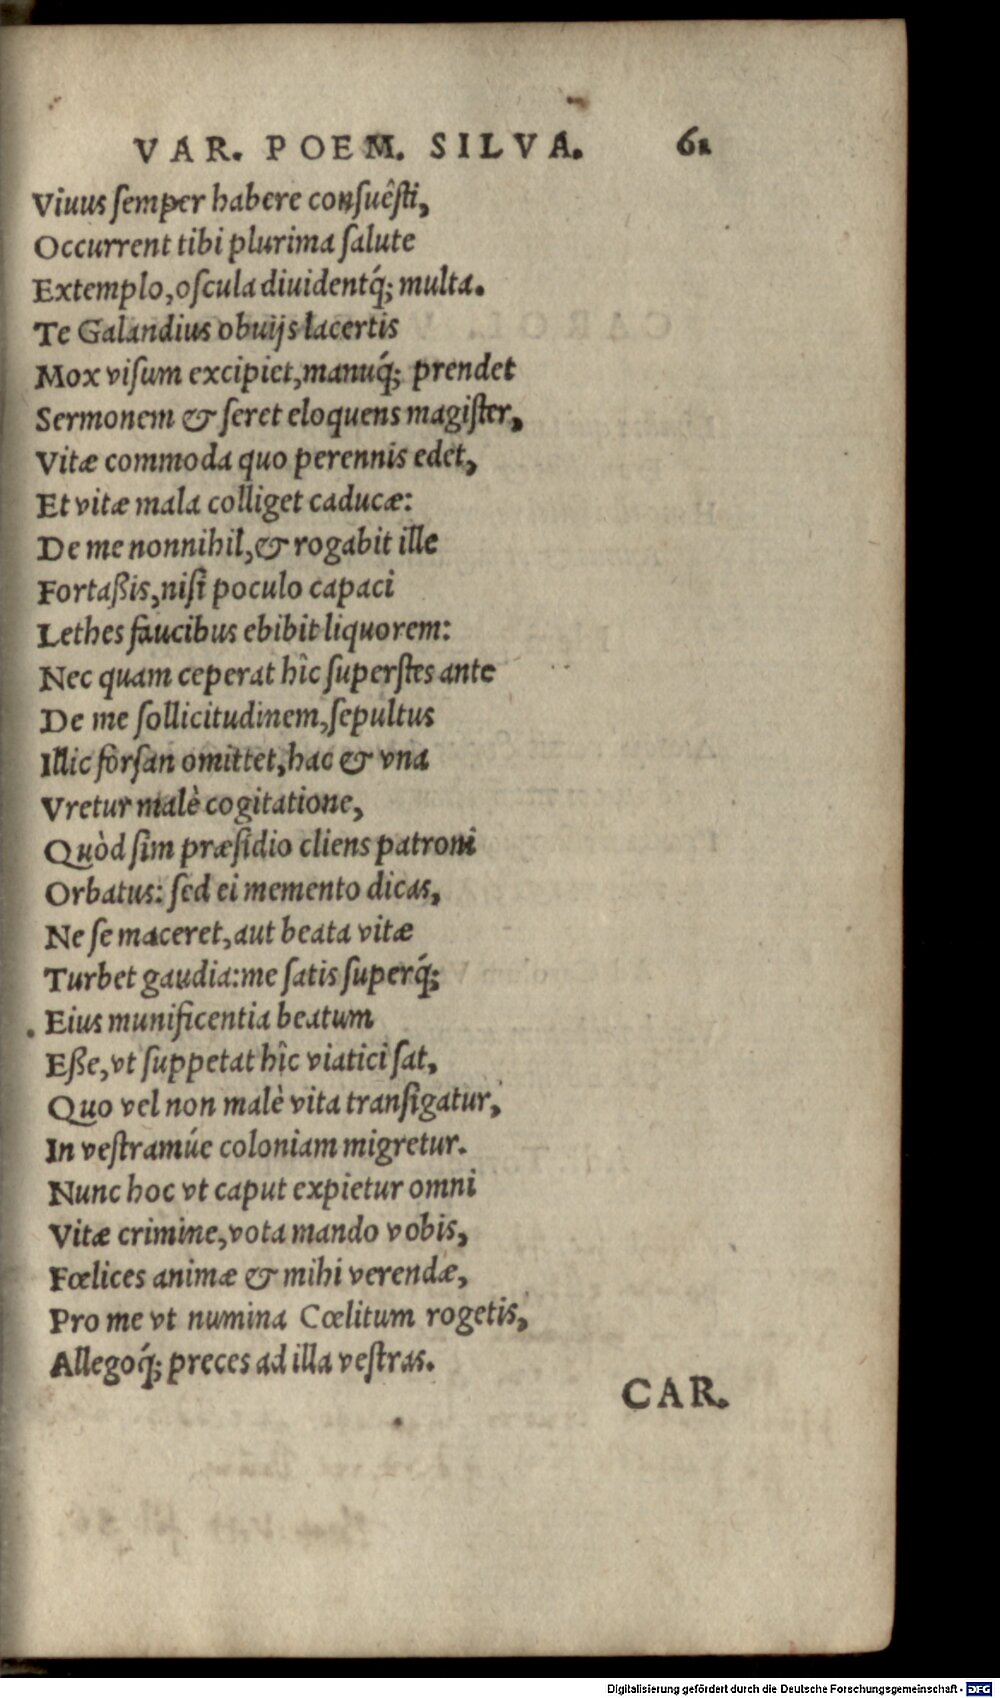 VAR. POEM. SILVA. 61
Viuus ſemper habere conſuêſti,
Occurrent tibi plurima ſalute
Extemplo, oſcula diuidentq́; multa.
Te Galandius obuijs lacertis
Mox viſum excipiet, manuq́; prendet
Sermonem & ſeret eloquens magiſter,
Vitæ commoda quo perennis edet,
Et vitæ mala colliget caducæ:
De me nonnihil, & rogabit ille
Fortaßis, niſi poculo capaci
Lethes faucibus ebibit liquorem:
Nec quam ceperat hîc ſuperſtes ante
De me ſollicitudinem, ſepultus
Illic forſan omittet, hac & vna
Vretur malè cogitatione,
Quòd ſim præſidio cliens patroni
Orbatus: ſed ei memento dicas,
Ne ſe maceret, aut beata vitæ
Turbet gaudia: me ſatis ſuperq́;
Eius munificentia beatum
Eße, vt ſuppetat hîc viatici ſat,
Quo vel non malè vita tranſigatur,
In veſtramúe coloniam migretur.
Nunc hoc vt caput expietur omni
Vitæ crimine, vota mando vobis,
Fœlices animæ & mihi verendæ,
Pro me vt numina Cœlitum rogetis,
Allegoq́; preces ad illa veſtras.
CAR.
Digitalisierung gefördert durch die Deutsche Forschungsgemeinschaft - DFG